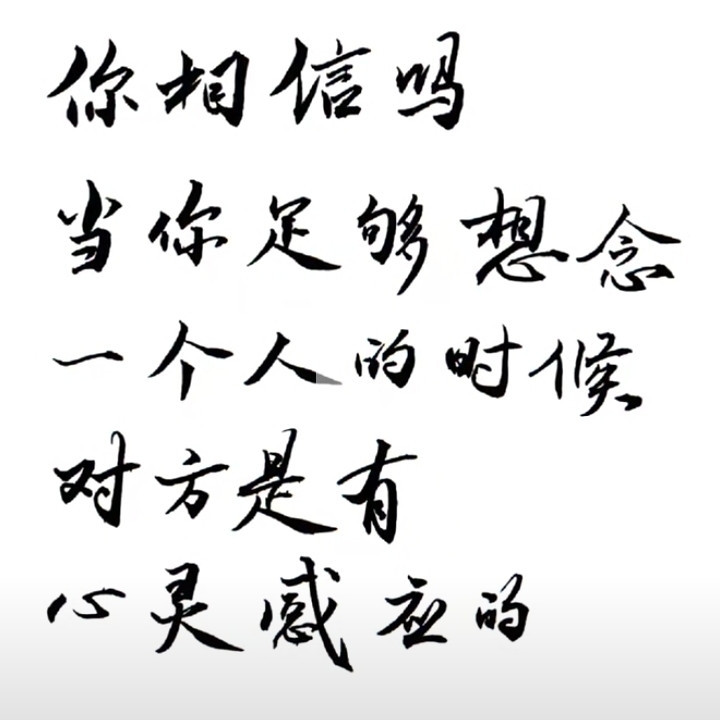 你相信吗
当你足够想念
一个人的时候
对方是有
心灵感应的